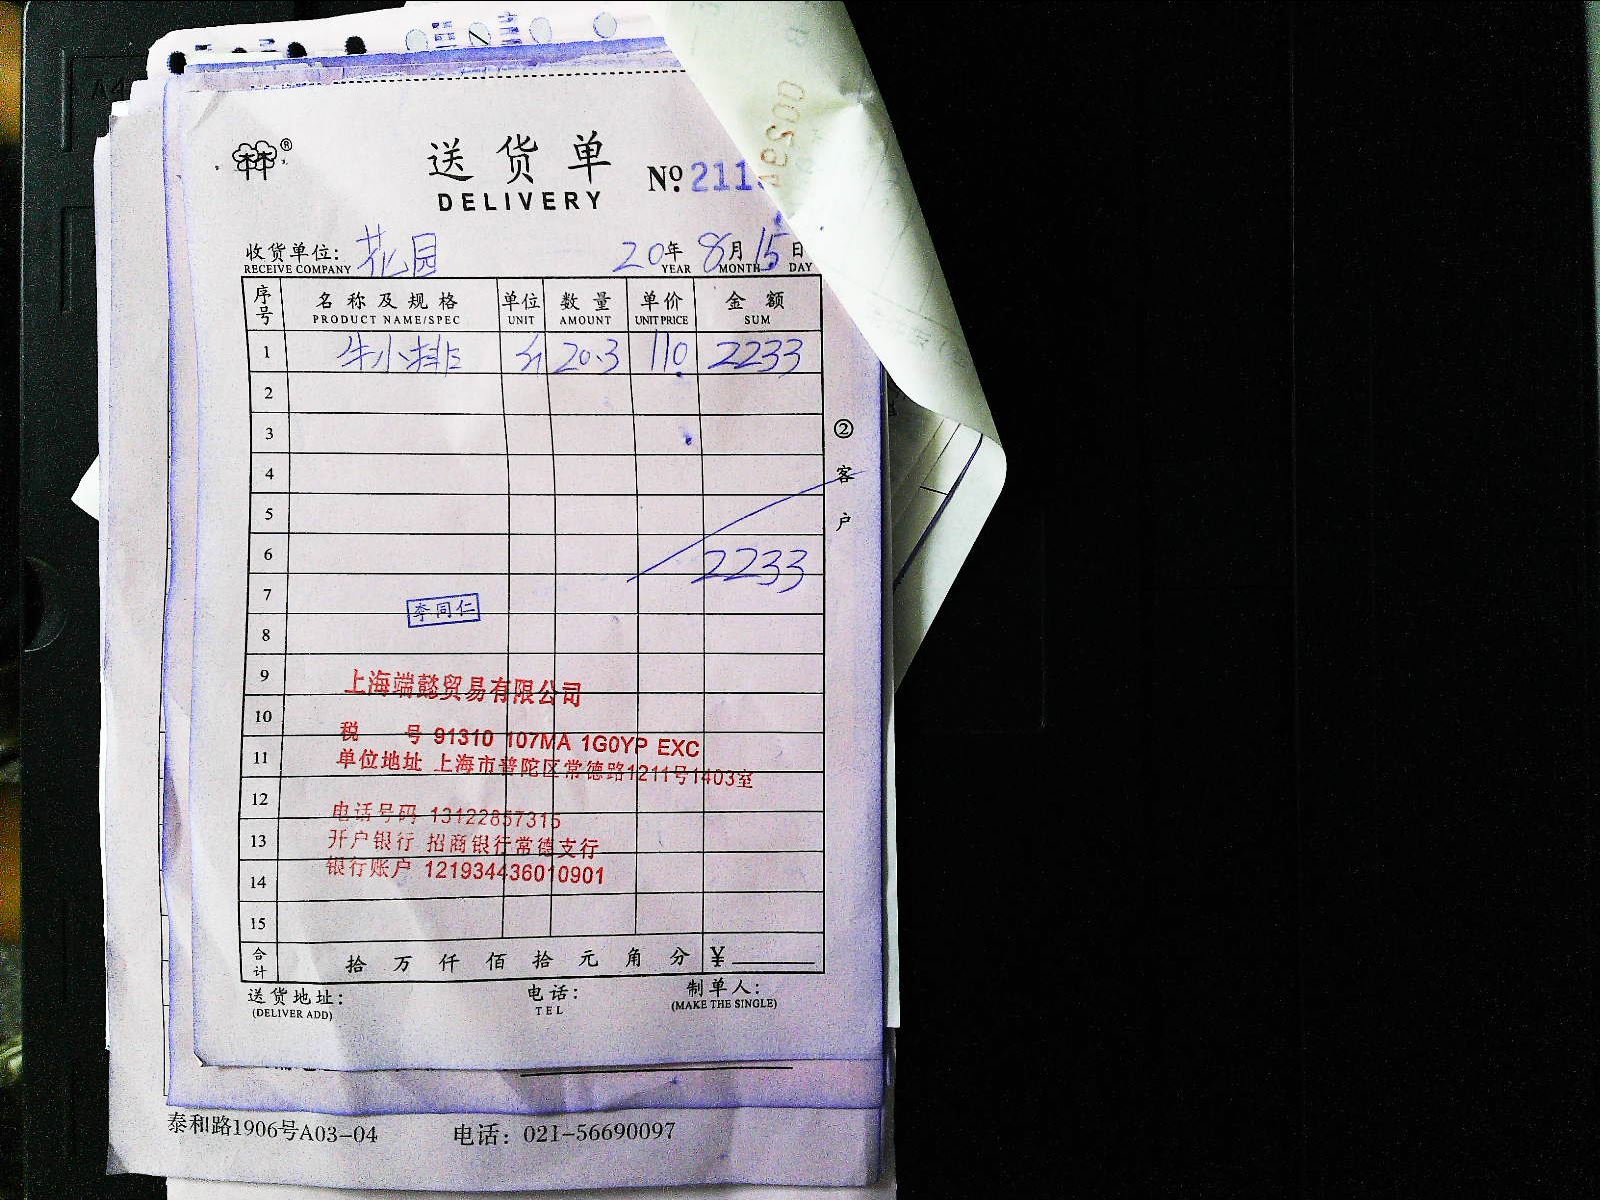 送货单
DELIVERY
№ 211
收货单位: 花园 20年 8月 15日
RECEIVE COMPANY YEAR MONTH DAY
序号 名称及规格 单位 数量 单价 金额
PRODUCT NAME/SPEC UNIT AMOUNT UNIT PRICE SUM
1 牛小排 斤 20.3 110 2233
2
3
4
5
6 2233
7
8
9
10
11
12
13
14
15
② 客户
李同仁
上海端懿贸易有限公司
税 号 91310 107MA 1G0YP EXC
单位地址 上海市普陀区常德路1211号1403室
电话号码 13122857315
开户银行 招商银行常德支行
银行账户 121934436010901
合计 拾 万 仟 佰 拾 元 角 分 ¥
送货地址: 电话: 制单人:
(DELIVER ADD) TEL (MAKE THE SINGLE)
泰和路1906号A03-04 电话: 021-56690097